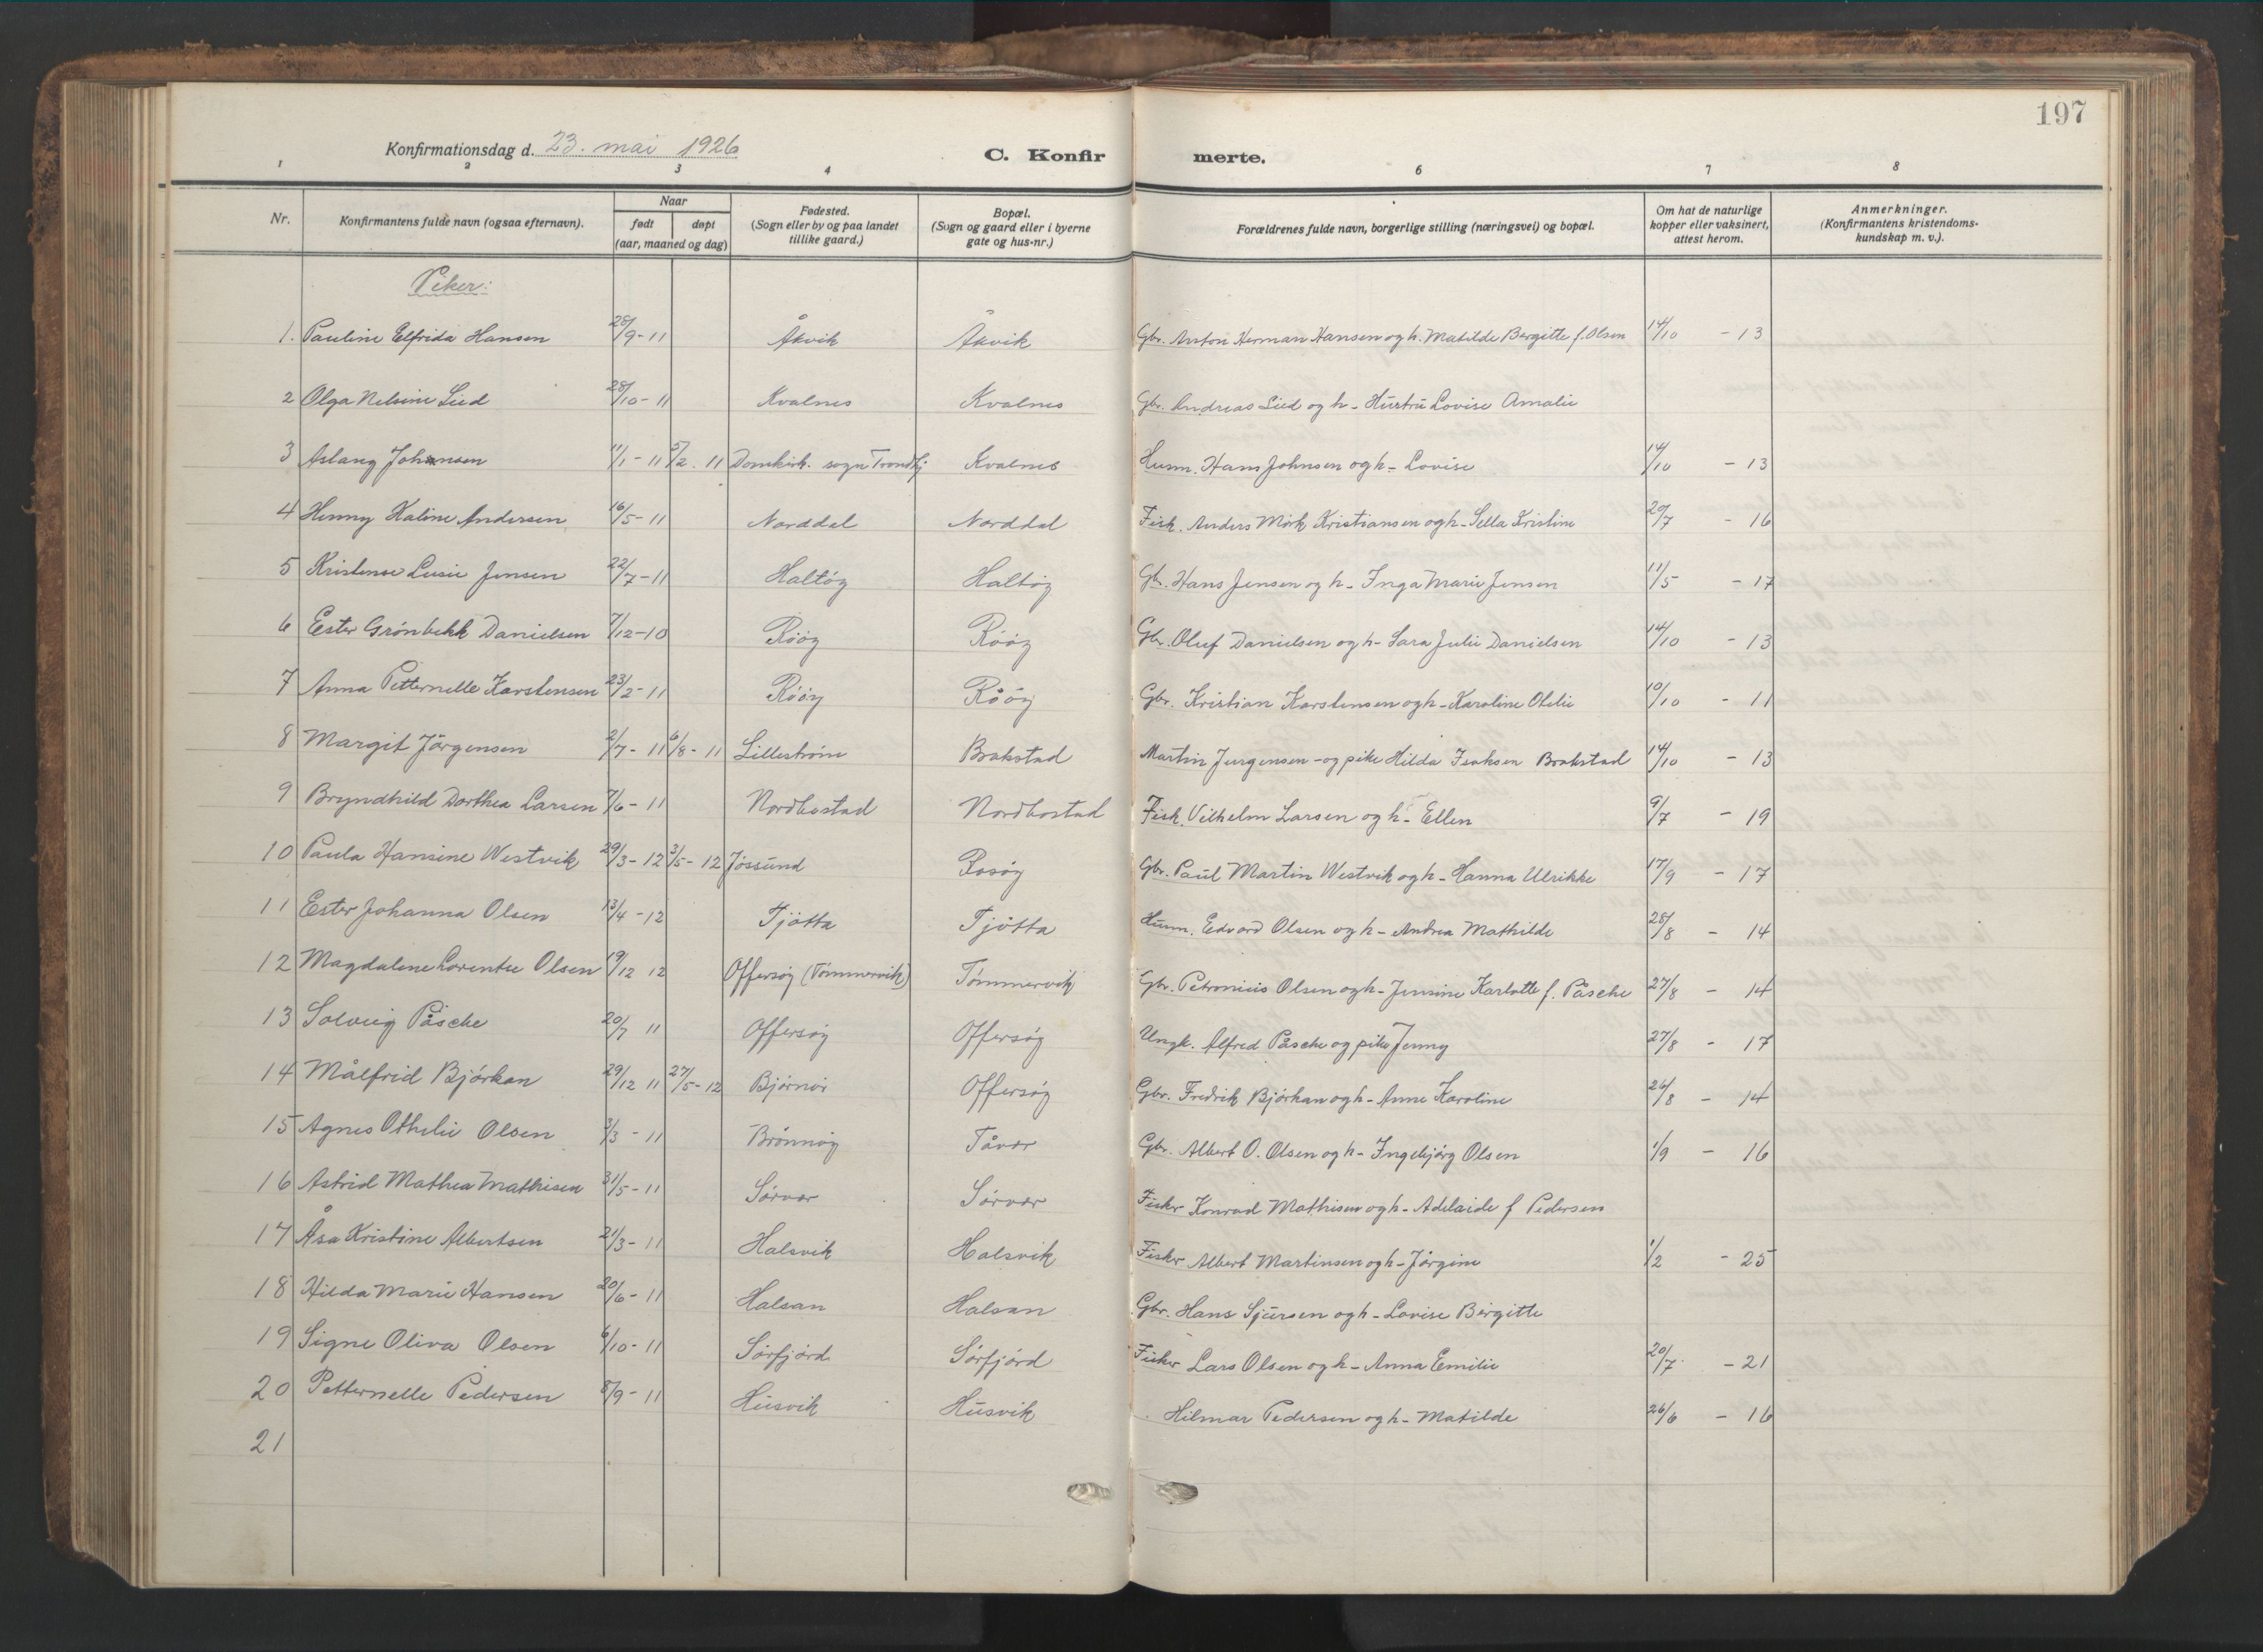 197
Konfirmationsdag d. 23. mai 1926
C. Konfir merte.
1 2 3 4 6 7 8
Nr. Konfirmantens fulde navn (ogsaa efternavn). Naar født døpt (aar, maaned og dag) Fødested. (Sogn eller by og paa landet tillike gaard.) Bopæl. (Sogn og gaard eller i byerne gate og hus-nr.) Forældrenes fulde navn, borgerlige stilling (næringsvei) og bopæl. Om hat de naturlige kopper eller vaksinert, attest herom. Anmerkninger. (Konfirmantens kristendomskundskap m. v.).
Piker:
1. Pauline Elfrida Hansen 28/9-11 Åkvik Åkvik Gbr. Anton Herman Hansen og h. Matilde Bergitte f. Olsen 14/10 - 13
2 Olga Nelsine Lied 28/10-11 Kvalnes Kvalnes Gbr. Andreas Lied og h- Hustru Lovise Amalie
3 Aslaug Johnsen 11/1-11 5/2.11 Domkirk. sogn Trondhj Kvalnes Husm. Hans Johnsen og h- Lovise 14/10 - 13
4 Henny Haline Andersen 16/5-11 Norddal Norddal Fisk. Anders Mörk Kristiansen og h- Sella Kristine 20/7 - 16
5 Kristense Lusie Jensen 22/7-11 Haltöy Haltöy Gbr. Hans Jensen og h- Inga Marie Jensen 11/5 - 17
6 Ester Grönbekk Danielsen 7/12-10 Rööy Rööy Gbr. Oluf Danielsen og h- Sara Julie Danielsen 14/10 - 13
7 Anna Petternelle Karstensen 23/2-11 Rööy Rööy Gbr. Kristian Karstensen og h- Karoline Otelie 10/10 - 11
8 Margit Jörgensen 2/7-11 6/8-11 Lilleström Brakstad Martin Jurgensen - og pike Hilda Isaksen Brakstad 14/10 - 13
9 Bryndhild Dorthea Larsen 7/6-11 Nordbostad Nordbostad Fisk. Vilhelm Larsen og h- Ellen 9/7 - 19
10 Paula Hansine Westvik 29/3-12 3/5-12 Jössund Rosöy Gbr. Paul Martin Westvik og h- Hanna Ulrikke 17/9 - 17
11 Ester Johanna Olsen 13/4-12 Tjötta Tjötta Husm. Edvard Olsen og h- Andrea Mathilde 28/8 - 14
12 Magdalene Lorentse Olsen 19/12 12 Offersöy (Tömmervik) Tömmervik Gbr. Petronius Olsen og h- Jensine Karlotte f. Påsche 27/8 - 14
13 Solveig Påsche 20/7 11 Offersöy Offersöy Ungk. Alfred Påsche og pike Jenny 27/8 - 17
14 Målfrid Björkan 29/12 11 27/5-12 Björnör Offersöy Gbr. Fredrik Björkan og h- Anne Karoline 26/8 - 14
15 Agnes Othelie Olsen 3/3-11 Brönnöy Tåvær Gbr. Albert O. Olsen og h- Ingebjörg Olsen 1/9 - 16
16 Astrid Mathea Mathisen 31/5-11 Sörvær Sörvær Fisker Konrad Mathisen og h- Adelaide f Pedersen
17 Åsa Kristine Albertsen 21/3-11 Halsvik Halsvik Fisker Albert Martinsen og h- Jörgine 1/2 - 25
18 Hilda Marie Hansen 20/6-11 Halsan Halsan Gbr. Hans Sjursen og h- Lovise Birgitte
19 Signe Oliva Olsen 6/10-11 Sörfjörd Sörfjörd Fisker Lars Olsen og h- Anna Emilie 20/7 - 21
20 Petternelle Pedersen 8/9-11 Husvik Husvik Hilmar Pedersen og h- Matilde 26/6 - 16
21